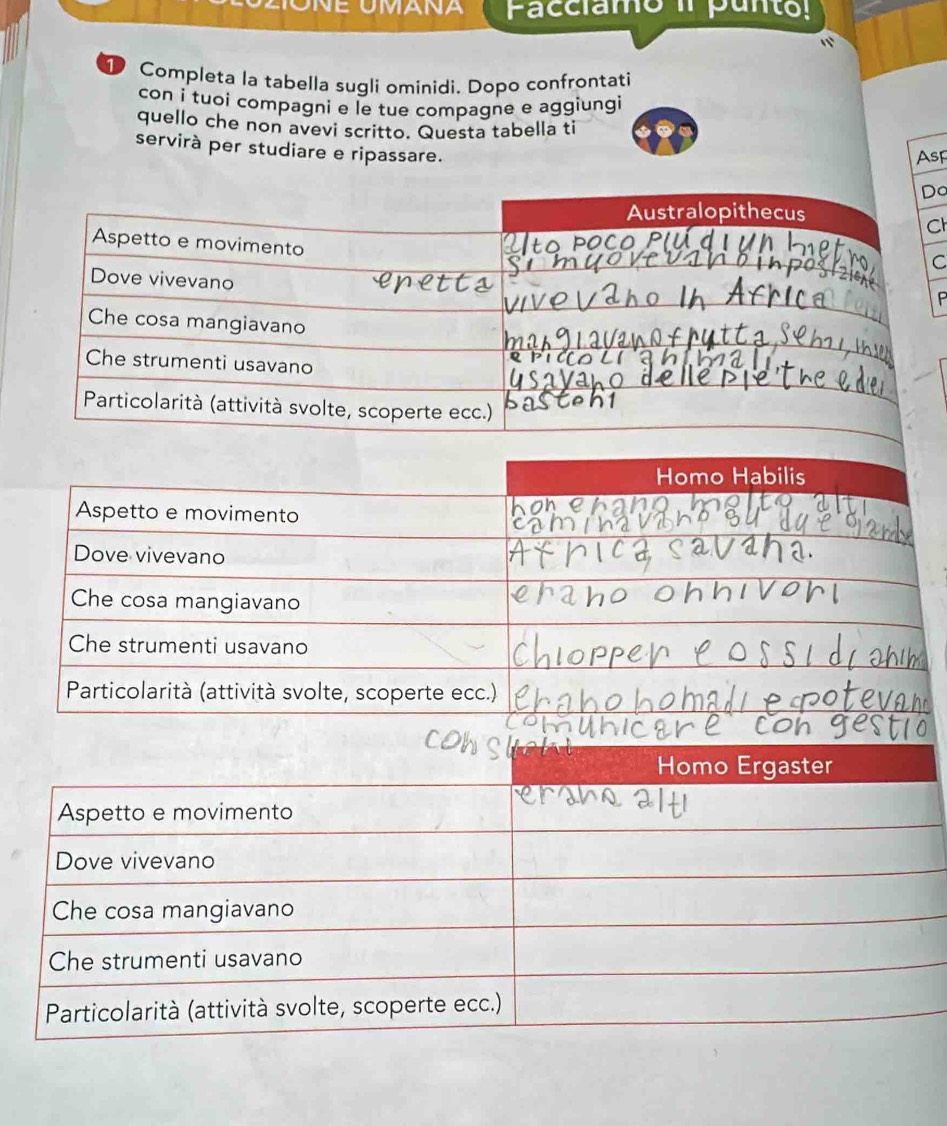 UMANA
Facciamo il punto!
1 Completa la tabella sugli ominidi. Dopo confrontati
con i tuoi compagni e le tue compagne e aggiungi
quello che non avevi scritto. Questa tabella ti
servirà per studiare e ripassare.
Australopithecus
Aspetto e movimento
alto poco più di un metro,
si muovevano in posizione
eretta
Dove vivevano
vivevano in Africa
Che cosa mangiavano
mangiavano frutta, semi,
e piccoli animali
Che strumenti usavano
usavano delle pietre e dei
bastoni
Particolarità (attività svolte, scoperte ecc.)
Homo Habilis
Aspetto e movimento
non erano molto alti
camminavano su due gambe
Dove vivevano
Africa, savana.
Che cosa mangiavano
erano onnivori
Che strumenti usavano
chiopper e ossi di anim
Particolarità (attività svolte, scoperte ecc.)
erano nomadi e potevano
comunicare con gesti o
con suoni
Homo Ergaster
Aspetto e movimento
erano alti
Dove vivevano
Che cosa mangiavano
Che strumenti usavano
Particolarità (attività svolte, scoperte ecc.)
Asp
Do
Ch
C
P